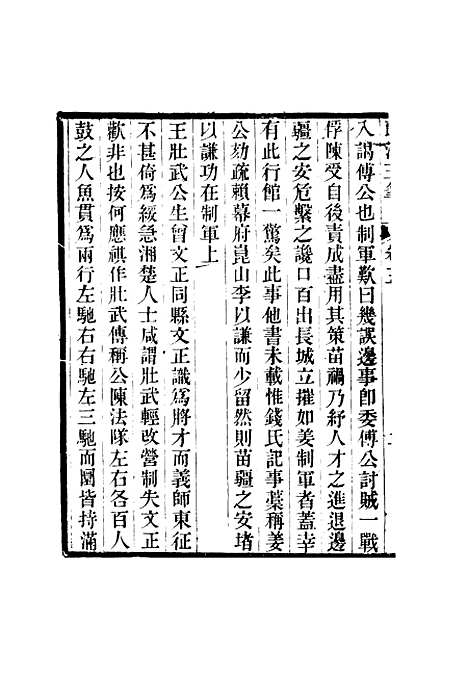 入謁傅公也制軍歎曰幾誤邊事卽委傅公討賊一戰
俘陳受自後責成盡用其策苗禍乃紓人才之進退邊
疆之安危繫之讒口百出長城立摧如姜制軍者蓋幸
有此行館一驚矣此事他書未載惟錢氏記事藁稱姜
公劾疏賴幕府崑山李以謙而少留然則苗疆之安堵
以謙功在制軍上
王壯武公生曾文正同縣文正識爲將才而義師東征
不甚倚爲緩急湘楚人士咸謂壯武輕改營制失文正
歡非也按何應祺作壯武傳稱公陳法隊左右各百人
鼓之人魚貫爲兩行左馳右右馳左三馳而圜皆持滿